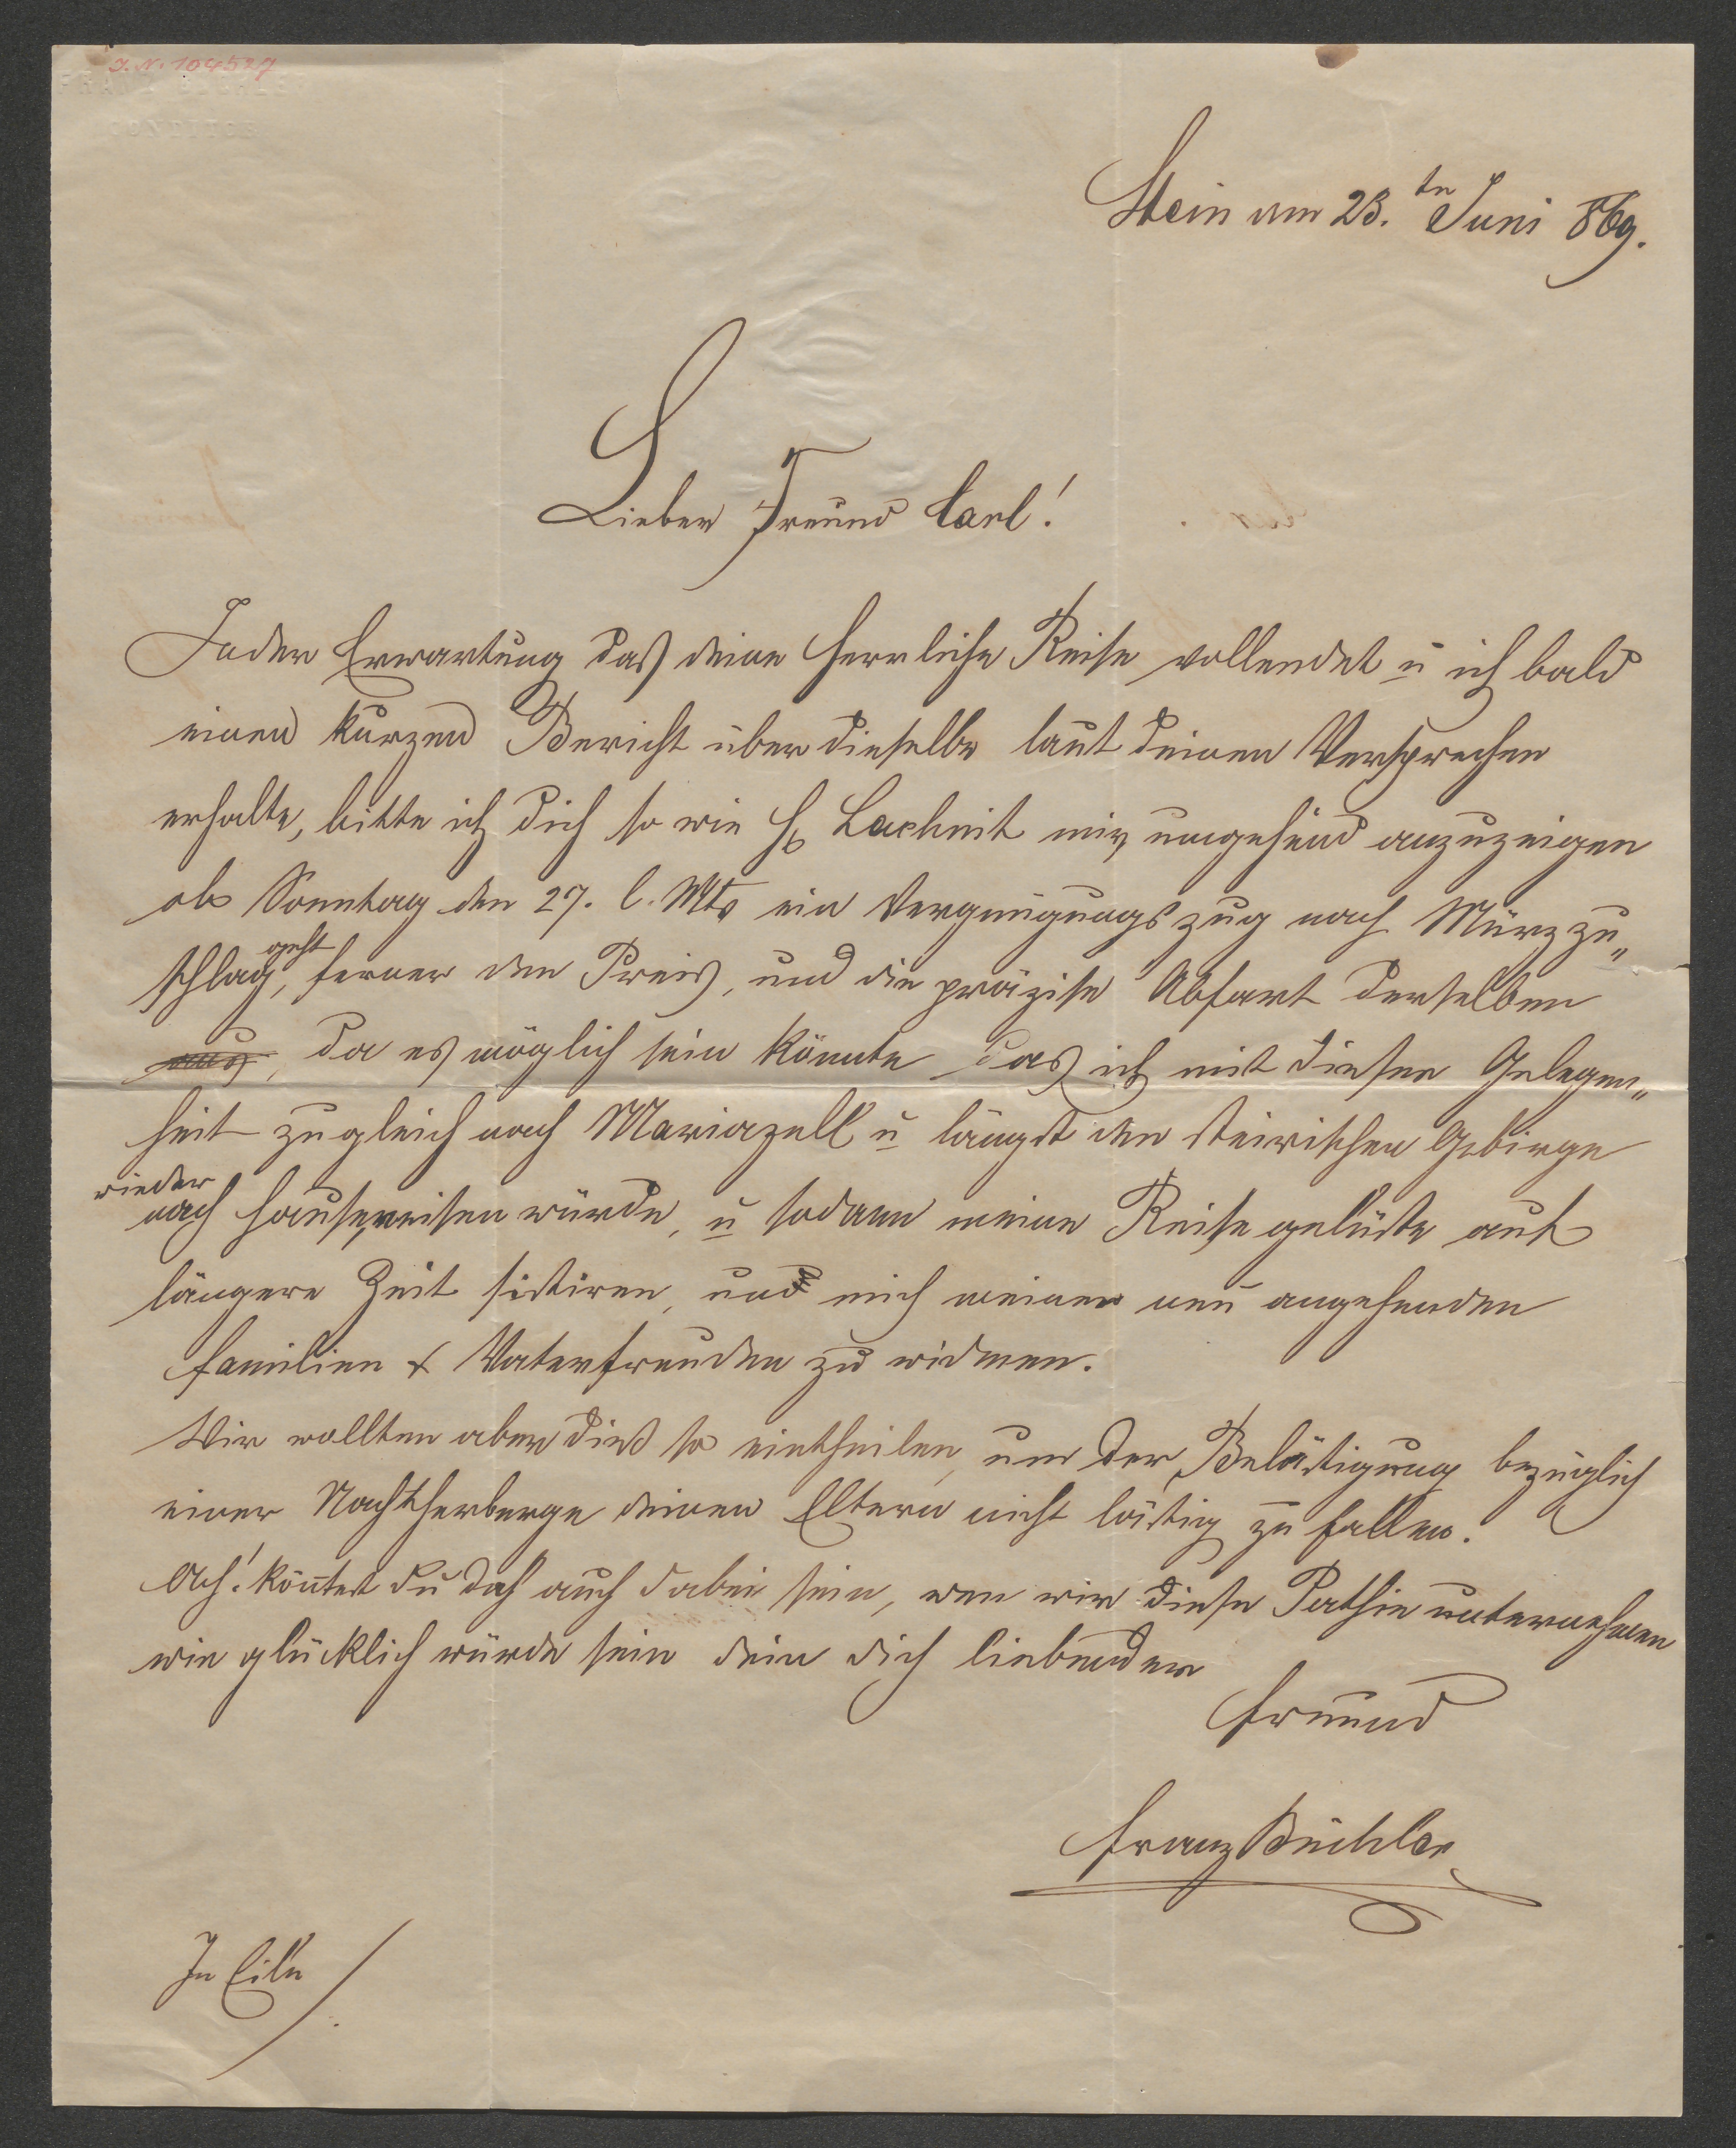 J. N. 104527
CONDITOR
Stein am 23.ten Juni 869.
Lieber Freund Carl!
In der Erwartung daß deine herrliche Reise vollendet u ich bald
einen kurzen Bericht über dieselbe laut deinen Versprechen
erhalte, bitte ich dich so wie H Lachnit mir umgehend anzuzeigen
ob Sonntag den 27. l. Mts ein Vergnügungszug nach Mürzzu„
schlag geht, ferner den Preis, und die präzise Abfart derselben
aus, da es möglich sein könnte das ich mit dieser Gelegen„
heit zugleich nach Mariazell u längst den steirischen Gebirge
wieder
nach Hause reisen würde, u sodann meine Reisegelüste auf
längere Zeit sistiren, und mich meinen neu angehenden
Familien & Vaterfreuden zu widmen.
Wir wollten aber dieß so eintheilen, um der Belästigung bezüglich
einer Nachtherberge deinen Eltern nicht lästig zu fallen.
Ach! könntest du doch auch dabei sein, wen wir diese Parthie unternehmen
wie glücklich würde sein dein dich liebender
Freund
Franz Büchler
In Eile